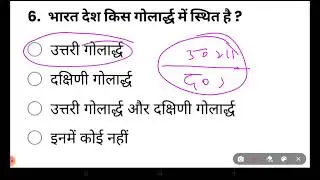 6. भारत देश किस गोलार्द्ध में स्थित है ?
उत्तरी गोलार्द्ध
दक्षिणी गोलार्द्ध
उत्तरी गोलार्द्ध और दक्षिणी गोलार्द्ध
इनमें कोई नहीं